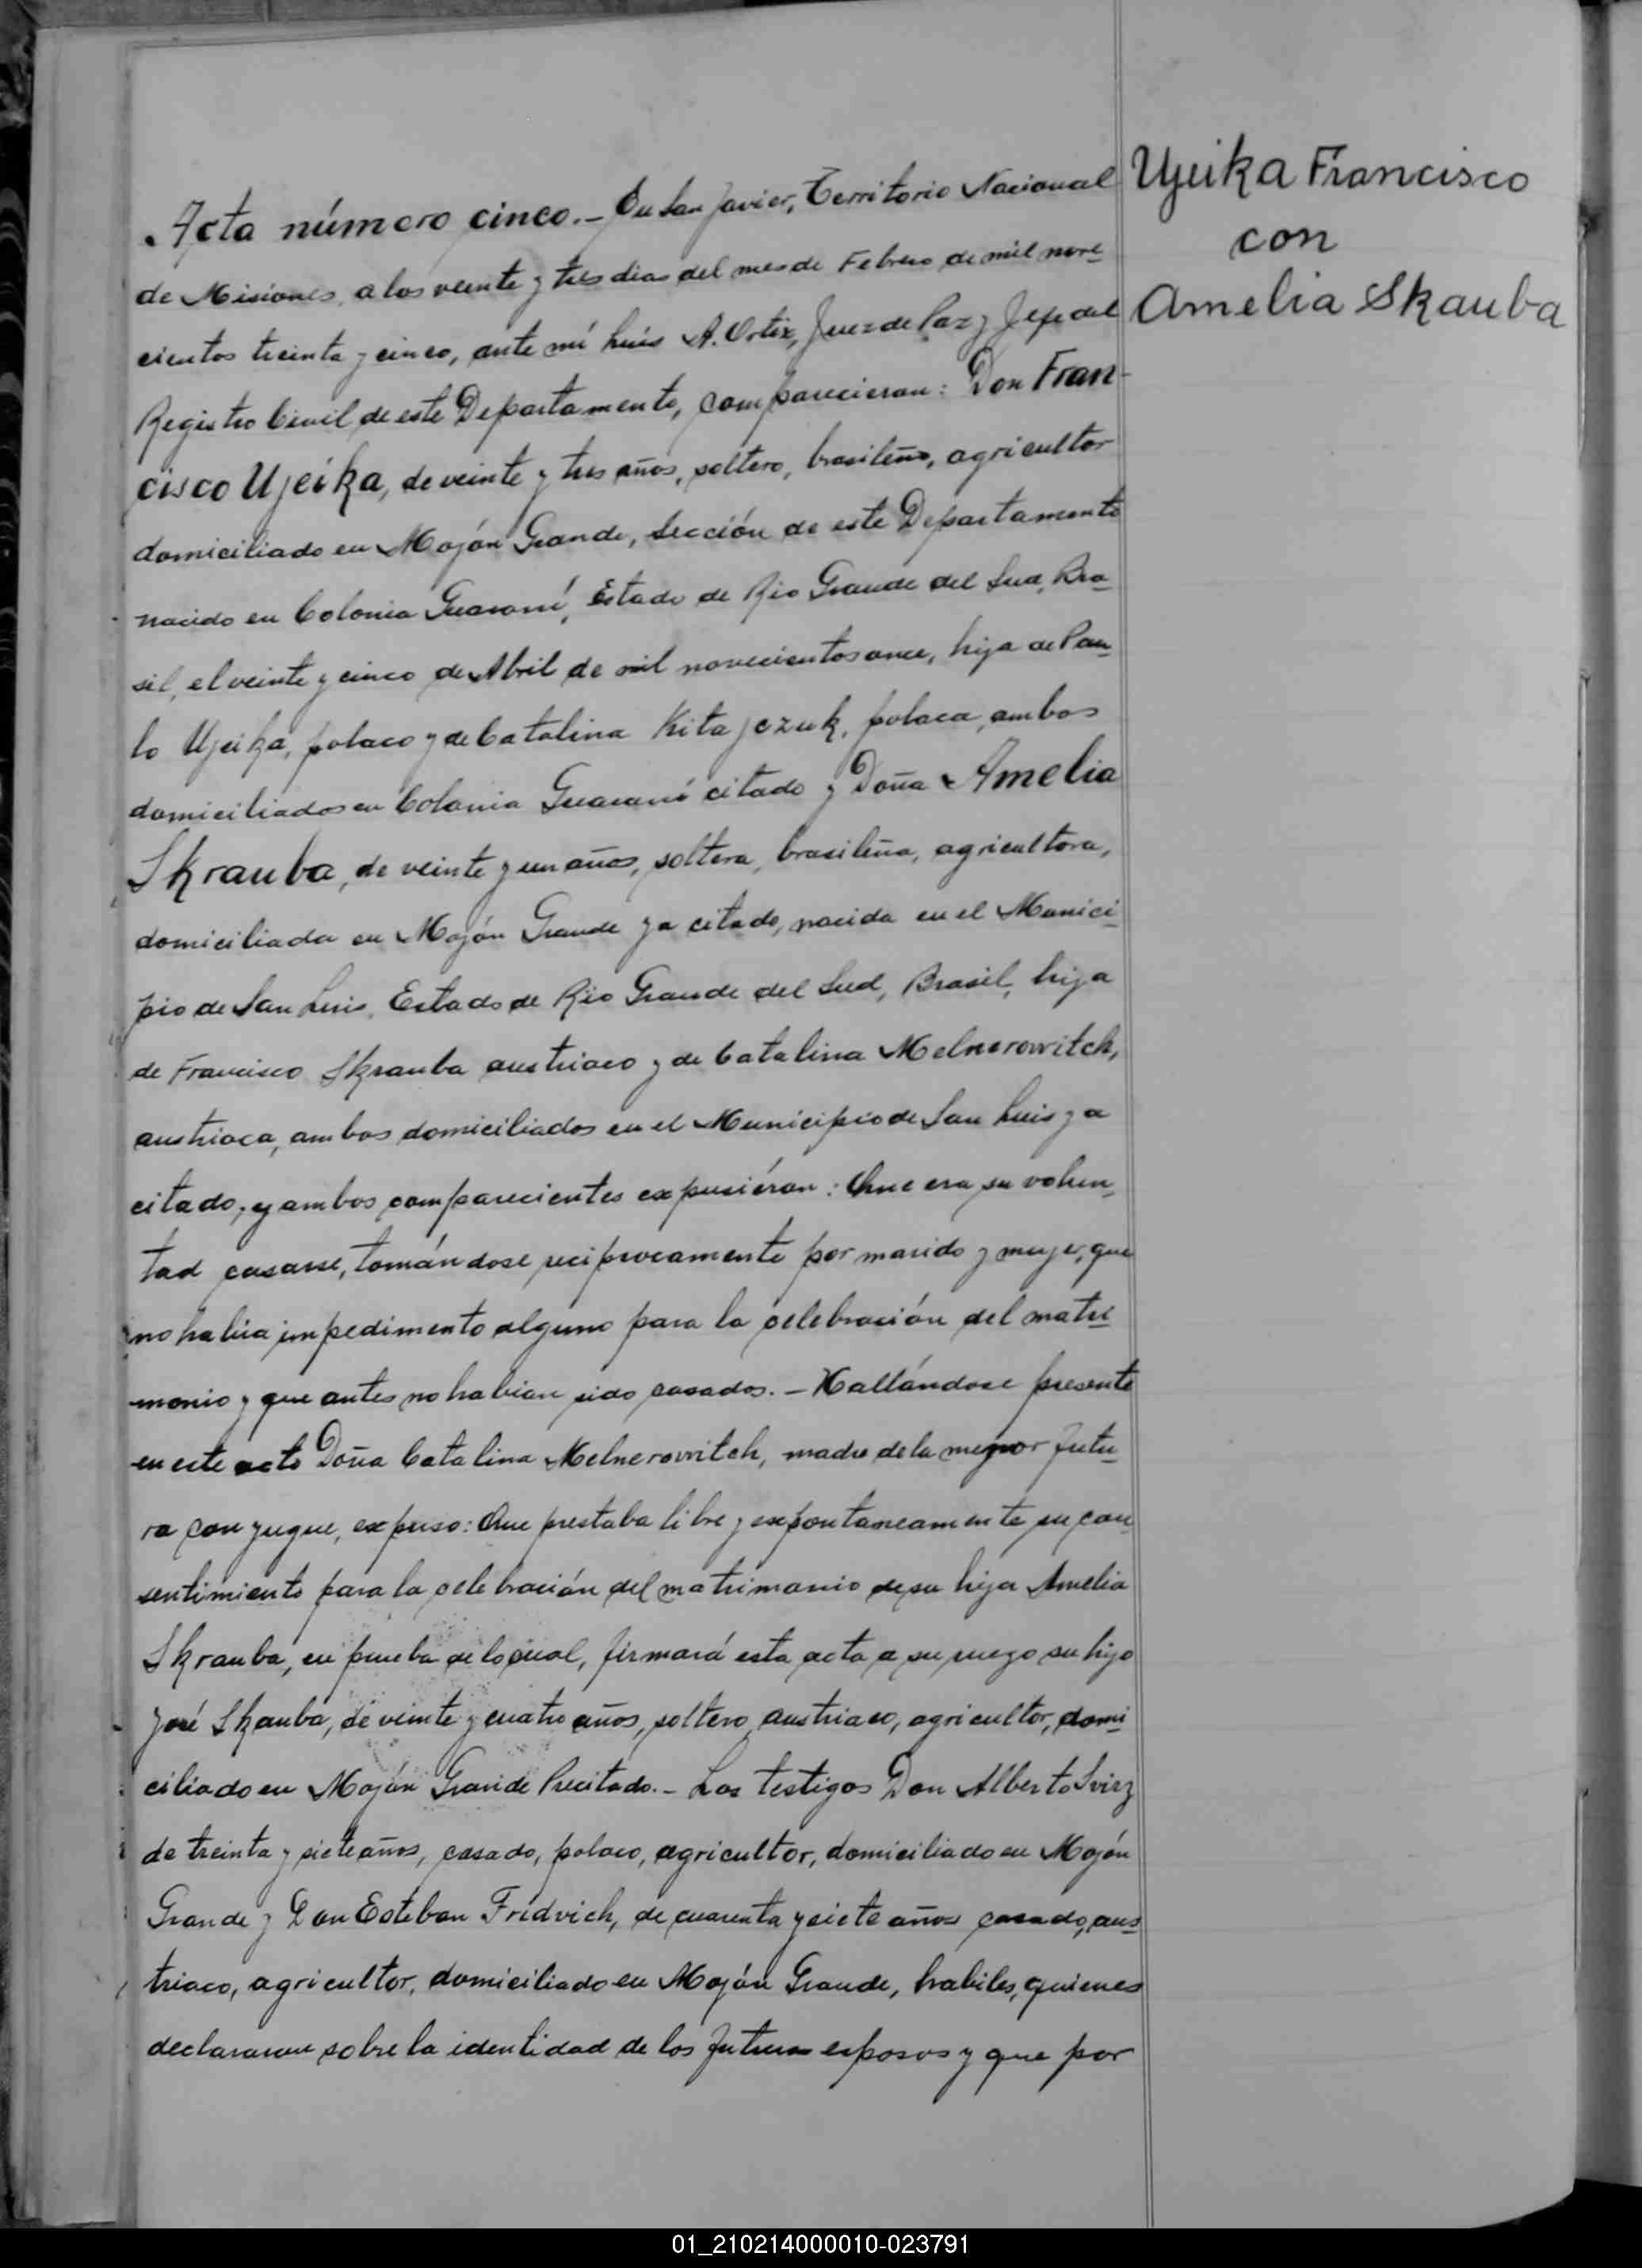 Ujeika Francisco
con
Amelia Skauba
Acta número cinco.- En San Javier, Territorio Nacional
de Misiones, a los veinte y tres dias del mes de Febrero de mil nove
cientos treinta y cinco, ante mí Luis A. Ortiz, Juez de Paz y Jefe del
Registro Civil de este Departamento, comparecieron: Don Fran-
cisco Ujeika, de veinte y tres años, soltero, brasileño, agricultor
domiciliado en Mojón Grande, Sección de este Departamento
nacido en Colonia Guaraní, Estado de Rio Grande del Sud, Bra
sil, el veinte y cinco de Abril de mil novecientos once, hijo de Pau
lo Ujeika, polaco y de Catalina Kitajczuk, polaca, ambos
domiciliados en Colonia Guaraní citado y Doña Amelia
Skrauba, de veinte y un años, soltera, brasileña, agricultora,
domiciliada en Mojón Grande ya citado, nacida en el Munici
pio de San Luis, Estado de Rio Grande del Sud, Brasil, hija
de Francisco Skrauba austriaco y de Catalina Melnerowitch,
austriaca, ambos domiciliados en el Municipio de San Luis ya
citado, y ambos comparecientes expusiéron: Que era su volun
tad casarse, tomándose reciprocamente por marido y mujer, que
no habia impedimento alguno para la celebración del matri
monio y que antes no habian sido casados. - Hallándose presente
en este acto Doña Catalina Melnerowitch, madre de la menor futu
ra conyugue, expuso: Que prestaba libre y expontaneamente su con
sentimiento para la celebración del matrimonio de su hija Amelia
Skrauba, en prueba de lo cual, firmará esta acta a su ruego su hijo
José Skauba, de veinte y cuatro años, soltero, austriaco, agricultor, domi
ciliado en Mojón Grande Precitado.- Los testigos Don Alberto Svirz
de treinta y siete años, casado, polaco, agricultor, domiciliado en Mojón
Grande y Don Esteban Fridvich, de cuarenta y siete años casado, aus
triaco, agricultor, domiciliado en Mojón Grande, habiles, quienes
declararon sobre la identidad de los futuros esposos y que por
01_210214000010-023791